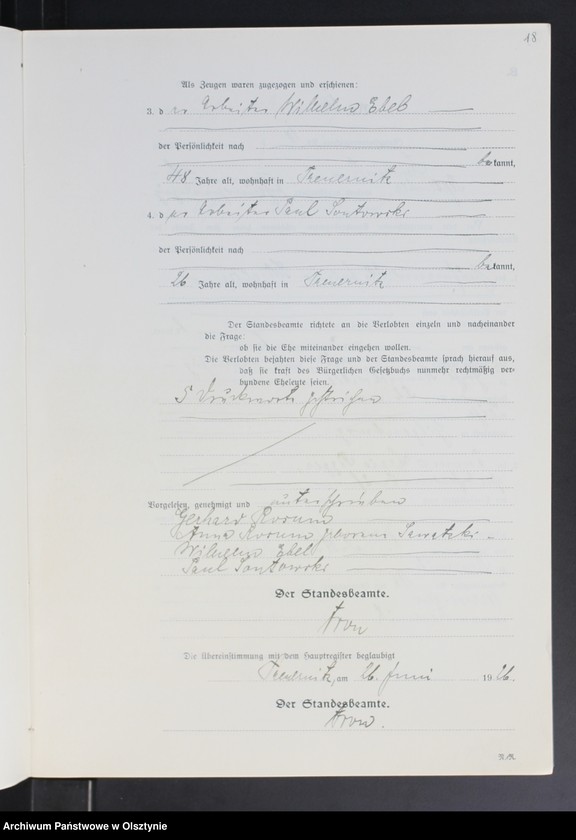 18
Als Zeugen waren zugezogen und erschienen:
3. der Arbeiter Wilhelm Ebel
der Persönlichkeit nach
bekannt,
48 Jahre alt, wohnhaft in Treuernitz
4. der Arbeiter Paul Sontowski
der Persönlichkeit nach
bekannt,
26 Jahre alt, wohnhaft in Treuernitz
Der Standesbeamte richtete an die Verlobten einzeln und nacheinander
die Frage:
ob sie die Ehe miteinander eingehen wollen.
Die Verlobten bejahten diese Frage und der Standesbeamte sprach hierauf aus,
daß sie kraft des Bürgerlichen Gesetzbuchs nunmehr rechtmäßig ver-
bundene Eheleute seien.
5 Druckworte gestrichen
Vorgelesen, genehmigt und unterschrieben
Gerhard
Anna geborene
Wilhelm Ebel
Paul Sontowski
Der Standesbeamte.
Die Übereinstimmung mit dem Hauptregister beglaubigt
Treuernitz, am 26. Juni 1926.
Der Standesbeamte.
Archiwum Państwowe w Olsztynie